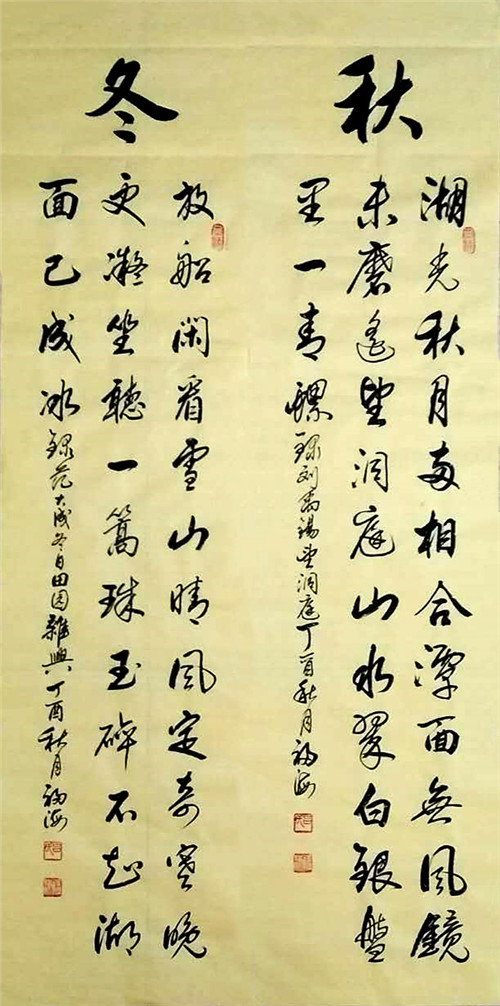 秋
湖光秋月两相合潭面無风鏡
未磨遥望洞庭山水翠白银盤
里一青螺 録刘禹锡望洞庭丁酉秋月福海
冬
放船闲看雪山晴风定奇寒晚
更凝坐聽一篙珠玉碎不知湖
面已成冰 録范大成冬日田园雜興丁酉秋月福海